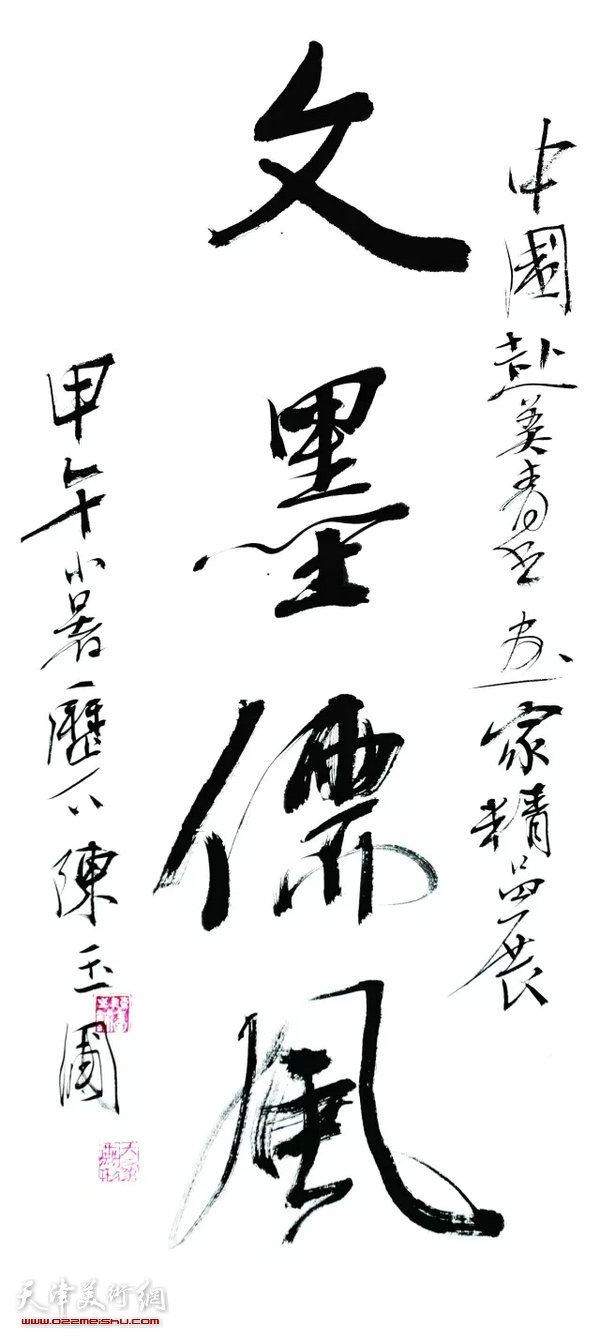 中國赴美青年畫家精品展
文墨儒風
甲午小暑歷下陳玉圃
天津美術網
www.022meishu.com